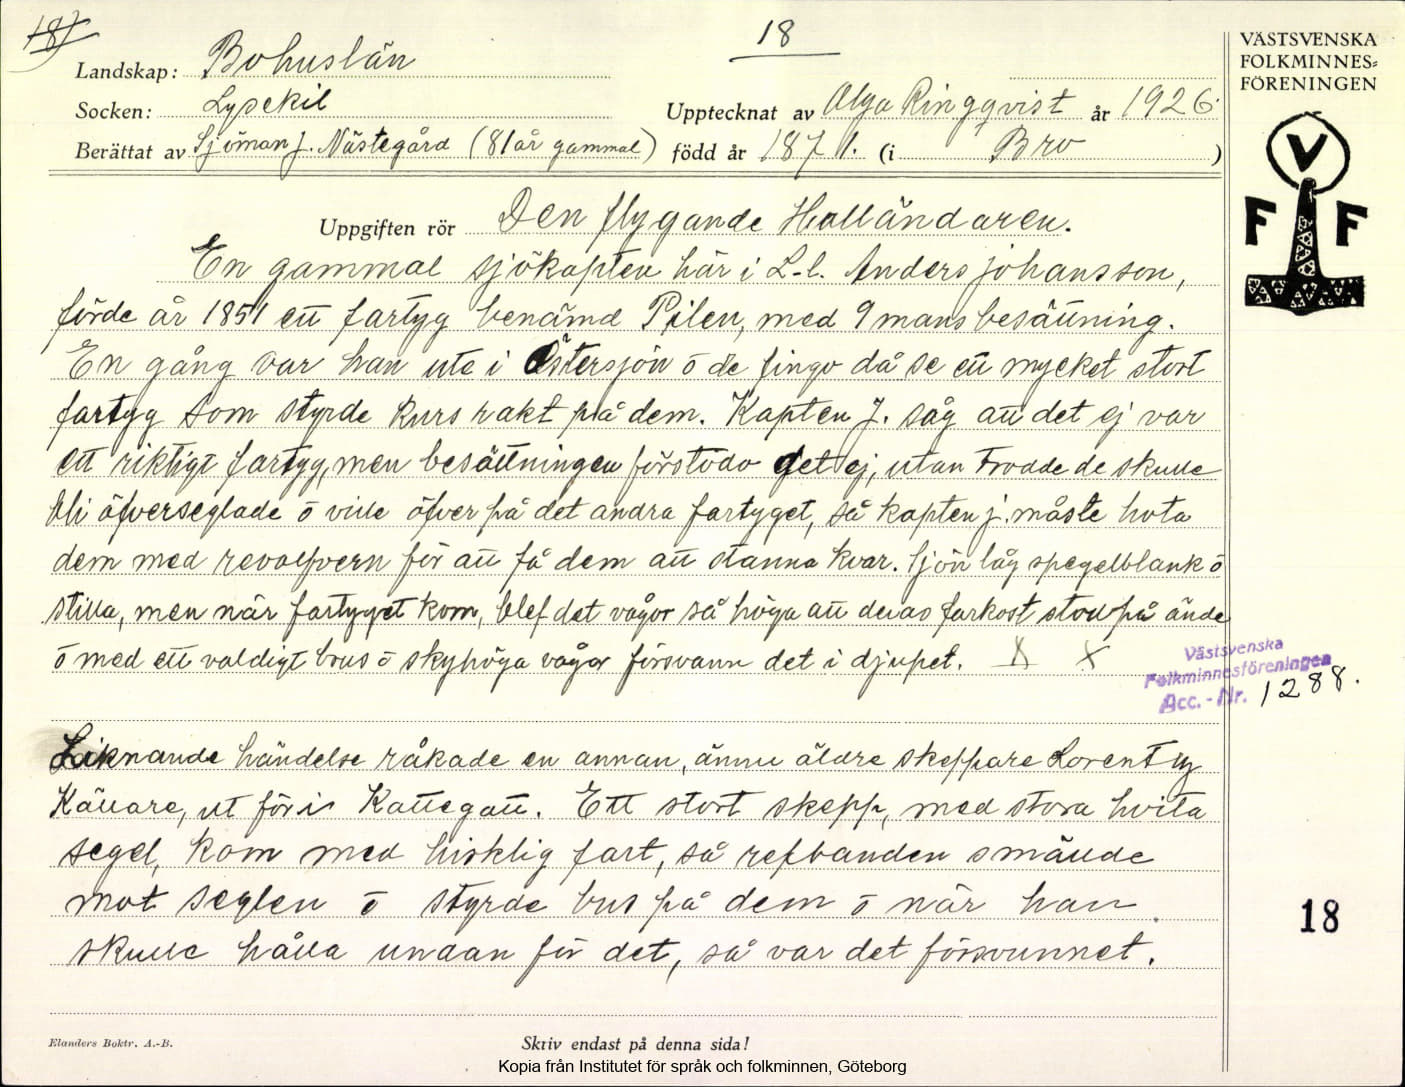 18
18
VÄSTSVENSKA
FOLKMINNES=
FÖRENINGEN
Landskap: Bohuslän
Socken: Lysekil
Upptecknat av Olga Ringqvist år 1926.
Berättat av Sjöman J. Nästegård (81 år gammal) född år 1871. (i Bro )
V
F F
Uppgiften rör Den flygande Holländaren.
En gammal sjökapten här i L-l. Anders Johansson,
förde år 1851 ett fartyg benämd Pilen, med 9 mans besättning.
En gång var han ute i Östersjön ō de fingo då se ett mycket stort
fartyg som styrde kurs rakt på dem. Kapten J. såg att det ej var
ett riktigt fartyg, men besättningen förstodo det ej, utan trodde de skulle
bli öfverseglade ō ville öfver på det andra fartyget, så kapten J. måste hota
dem med revolfvern för att få dem att stanna kvar. Sjön låg spegelblank ō
stilla, men när fartyget kom, blef det vågor så höga att deras farkost stod på ände
ō med ett valdigt brus ō skyhöga vågor försvann det i djupet. X X
Västsvenska
Folkminnesföreningen
Acc. - Nr. 1288.
Liknande händelse råkade en annan, ännu äldre skeppare Lorentz
Källare, ut för i Kattegatt. Ett stort skepp, med stora hvita
segel, kom med hisklig fart, så refbanden smällde
mot seglen ō styrde bus på dem ō när han
skulle hålla undan för det, så var det försvunnet.
18
Elanders Boktr. A.-B.
Skriv endast på denna sida!
Kopia från Institutet för språk och folkminnen, Göteborg